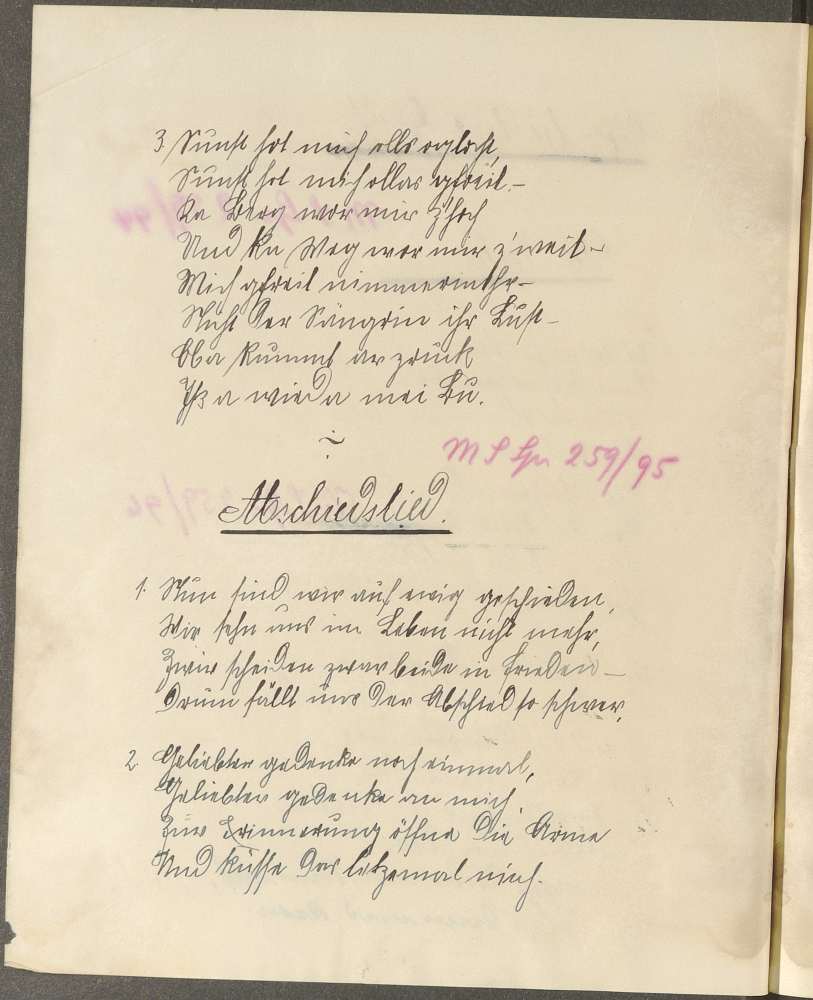 3. Sunst hot mich olls oglocht,
Sunst hot mich ollas gfreit. –
Ka Berg wor mir z'hoch
Und ka Weg wor mir z'weit –
Mich gfreit nimmermehr –
Nicht der Sängrin ihr Lust –
Oba kummt er zrück
Is a wieda mei Bu.
M S Gr 259/95
Abschiedslied.
1. Nun sind wir auf ewig geschieden,
Wir sehn uns im Leben nicht mehr,
Zwir scheiden zwar beide in Frieden –
Drum fällt uns der Abschied so schwer,
2. Geliebter gedenke noch einmal,
Geliebter gedenke an mich,
Zur Erinnerung öffne die Arme
Und küsse das letzemal mich.